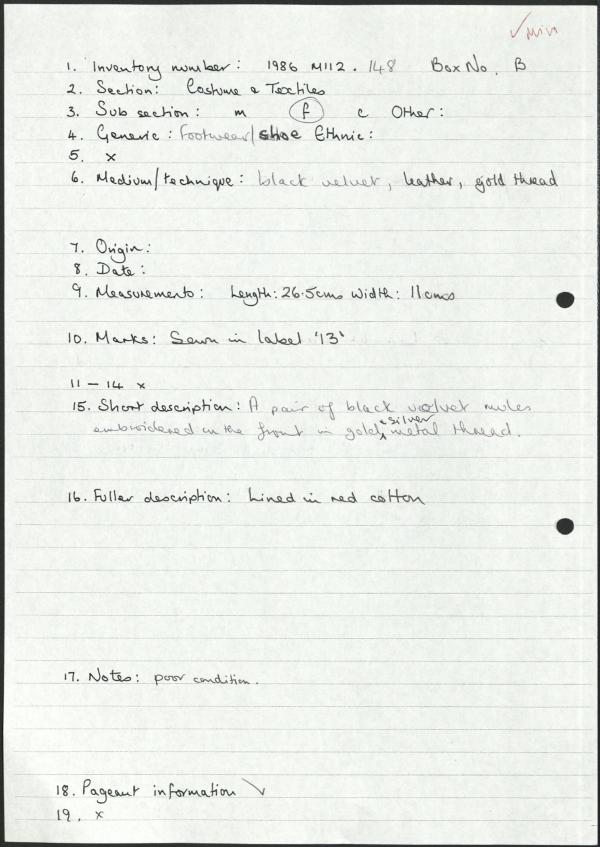 1. Inventory number: 1986 M112.148 Box No. B
2. Section: Costume & Textiles
3. Sub section: m f c Other:
4. Generic: Footwear/shoe Ethnic:
5. x
6. Medium/technique: black velvet, leather, gold thread
7. Origin:
8. Date:
9. Measurements: Length: 26.5cms Width: 11cms
10. Marks: Sewn in label '13'
11 - 14 x
15. Short description: A pair of black velvet mules
embroidered on the front in gold & silver metal thread.
16. Fuller description: Lined in red cotton
17. Notes: poor condition.
18. Pageant information
19. x